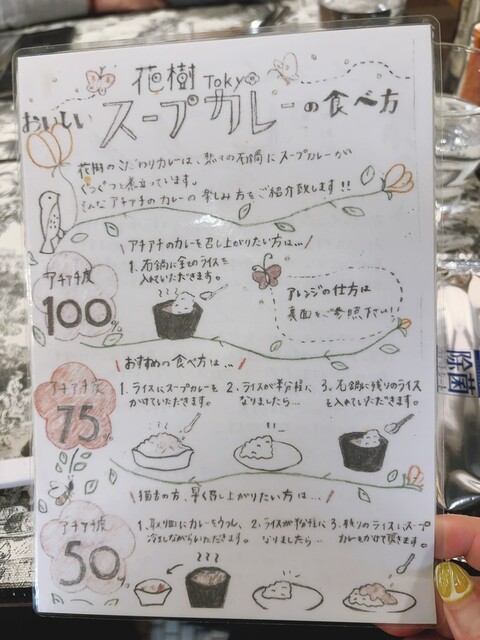 花樹 TOKYO
おいしい スープカレーの食べ方
花樹のこだわりカレーは、熱々の石鍋にスープカレーが
ぐつぐつと煮立っています。
そんなアチアチのカレーの楽しみ方をご紹介致します!!
アチアチのカレーを召し上がりたい方は…
アチアチ度
100%
1. 石鍋に全てのライスを
入れていただきます。
アレンジの仕方は
裏面をご参照下さい!!
おすすめの食べ方は…
アチアチ度
75%
1. ライスにスープカレーを
かけていただきます。
2. ライスが半分程に
なりましたら…
3. 石鍋に残りのライス
を入れていただきます。
猫舌の方、早く召し上がりたい方は…
アチアチ度
50%
1. 取り皿にカレーをうつし、
冷ましながらいただきます。
2. ライスが半分程に
なりましたら…
3. 残りのライスにスープ
カレーをかけて頂きます。
除菌